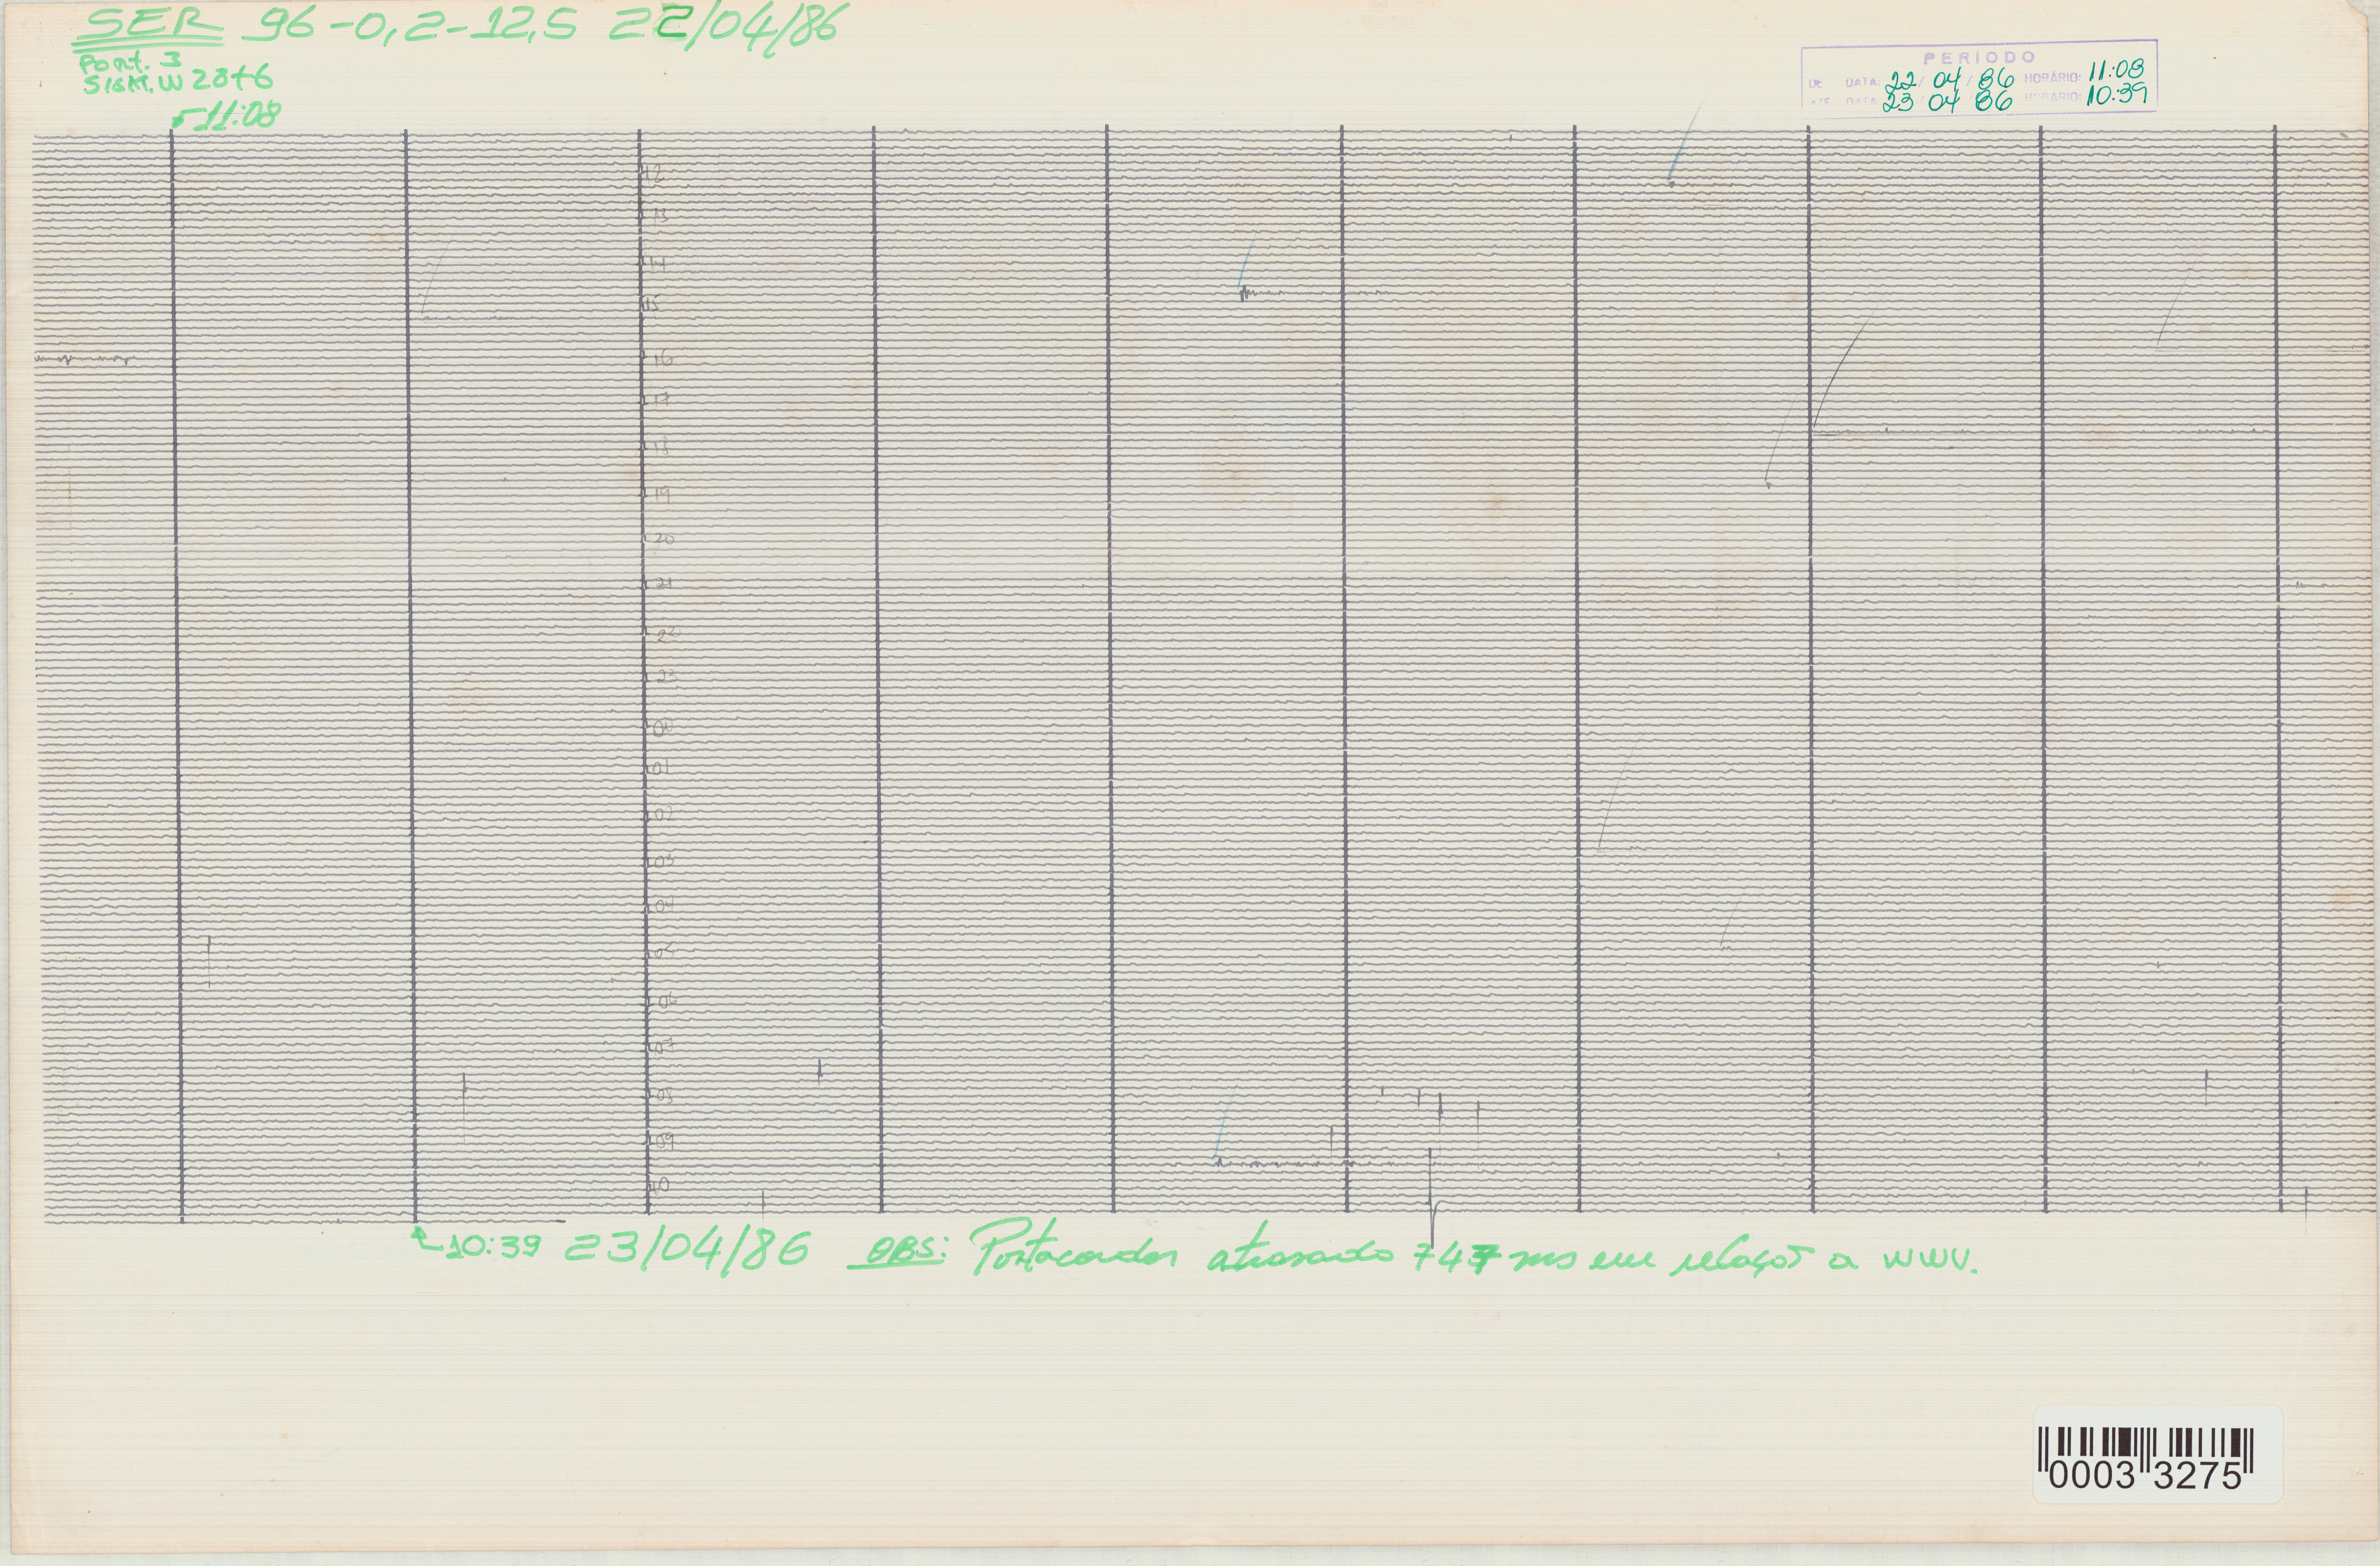 SER 96-0,2-12,5 22/04/86
Port. 3
SISM. W 2876
11:08
PERÍODO
DE DATA: 22/04/86 HORÁRIO: 11:08
ATÉ DATA 23 04 86 HORÁRIO: 10:39
12
13
14
15
16
17
18
19
20
21
22
23
00
01
02
03
04
05
06
07
08
09
10
10:39 23/04/86 OBS: Portacorder atrasado 747 ms em relação a WWV.
0003 3275